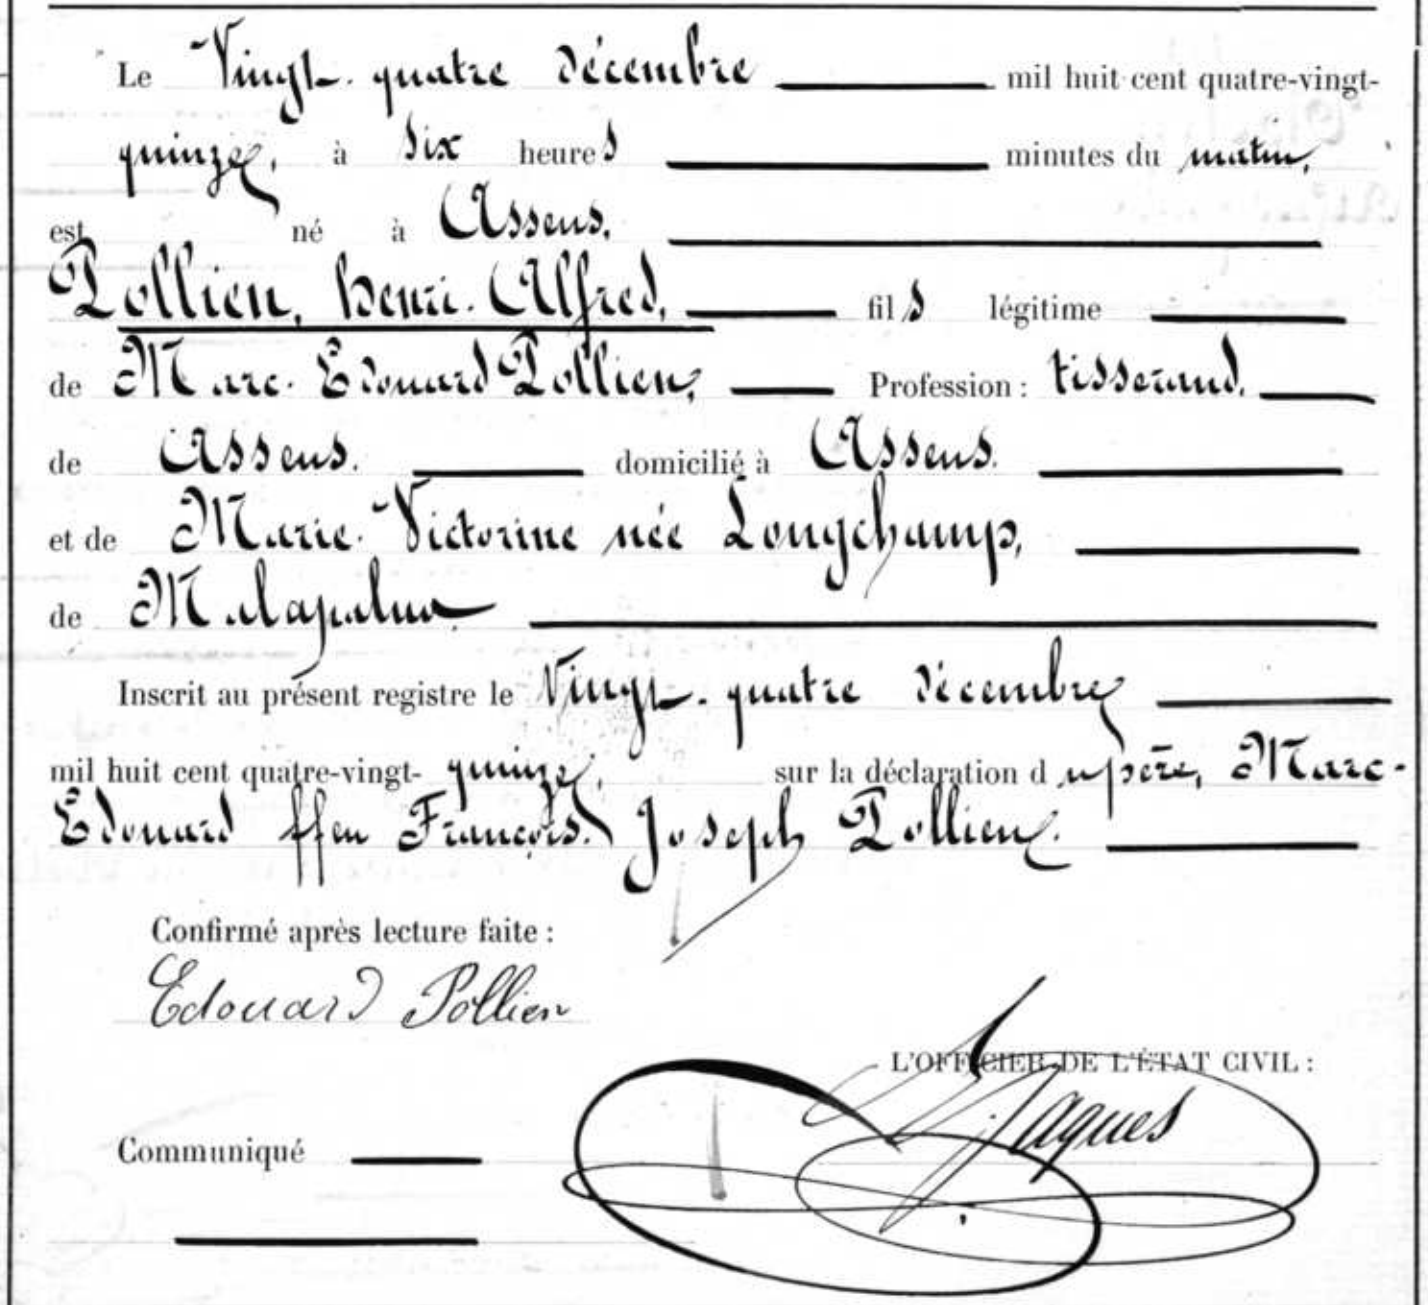 Le Vingt-quatre décembre mil huit cent quatre-vingt-
quinze, à six heures minutes du matin,
est né à Assens,
Pollien, Henri-Alfred, fils légitime
de Marc-Edouard Pollien, Profession : tisserand,
de Assens. domicilié à Assens.
et de Marie-Victorine née Longchamp,
de Malapalud
Inscrit au présent registre le Vingt-quatre décembre
mil huit cent quatre-vingt-quinze, sur la déclaration du père, Marc-
Edouard ffeu François-Joseph Pollien.
Confirmé après lecture faite :
Edouard Pollien
L'OFFICIER DE L'ÉTAT CIVIL :
Jaques
Communiqué